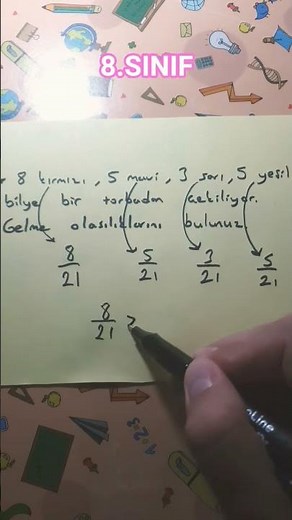 8.SINIF
8 kırmızı, 5 mavi, 3 sarı, 5 yeşil
bilye bir torbadan çekiliyor.
Gelme olasılıklarını bulunuz.
8/21 5/21 3/21 5/21
8/21 >